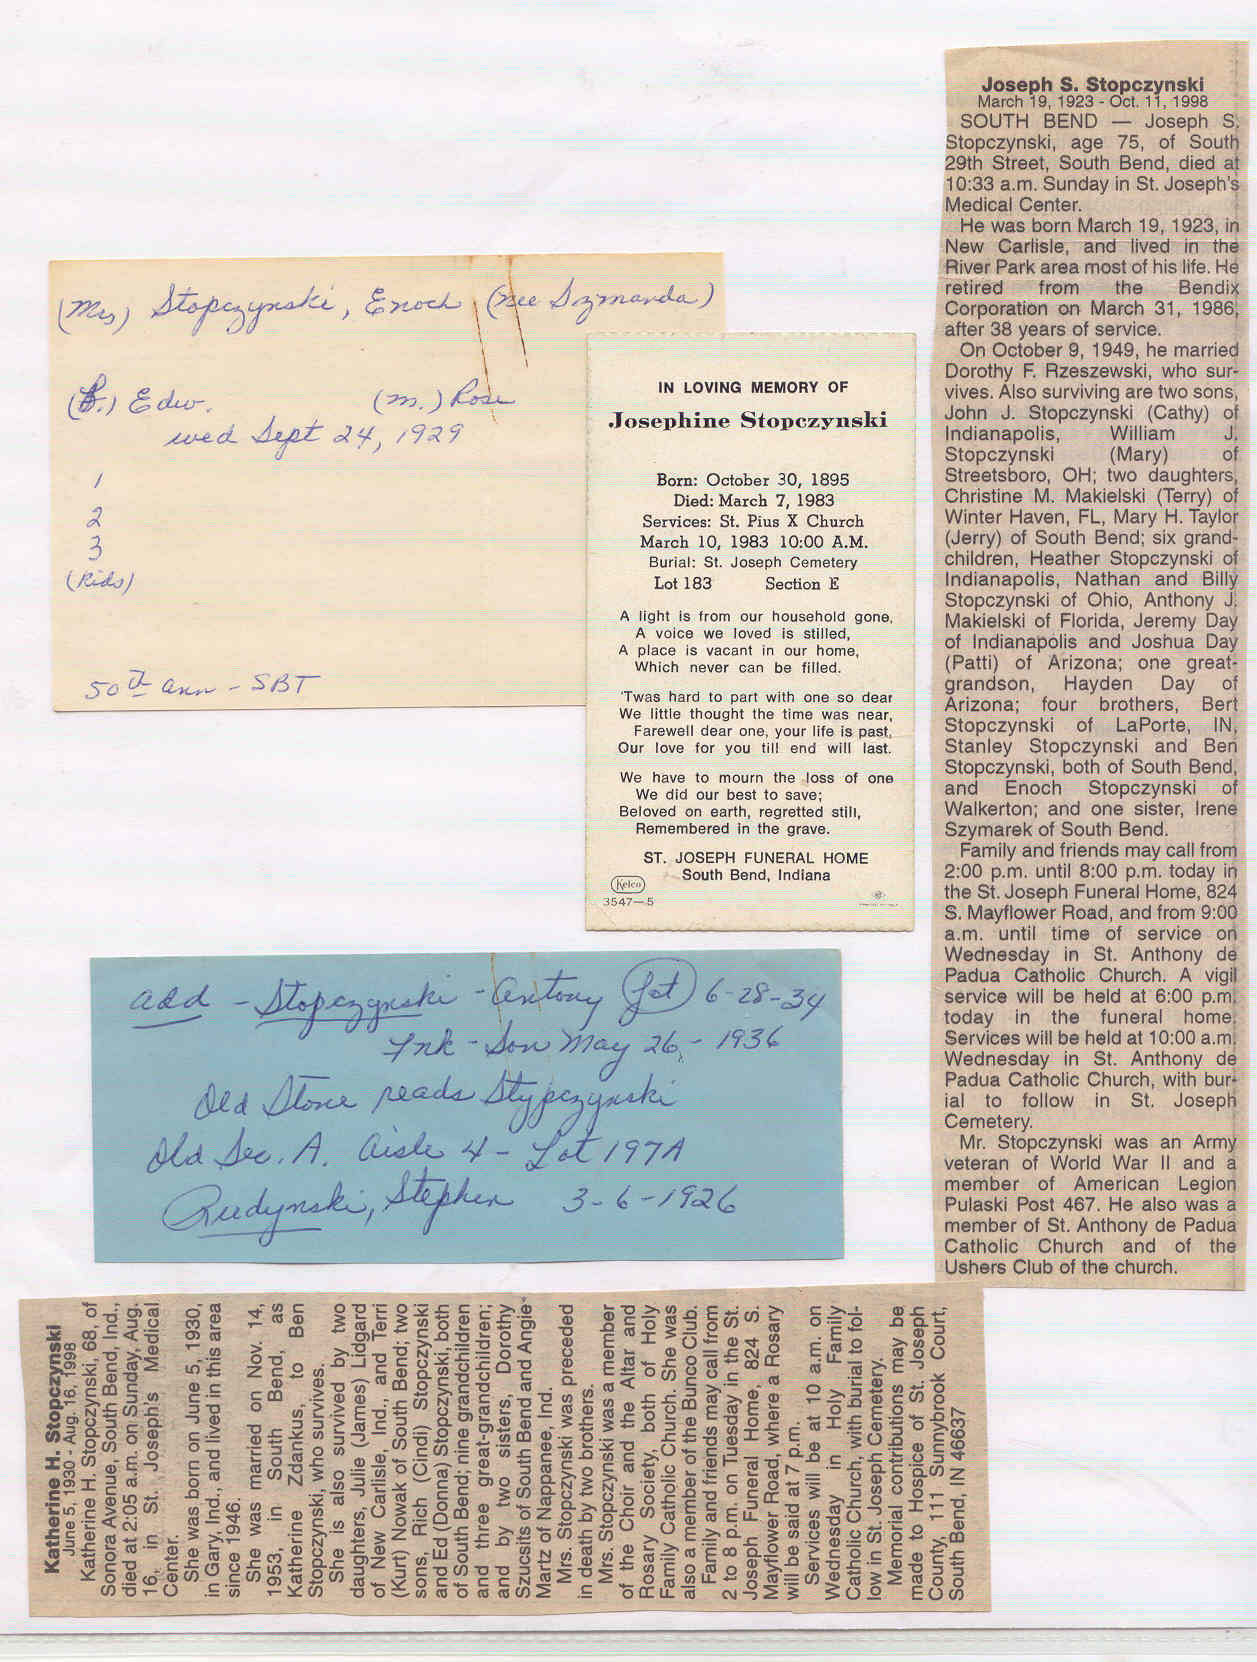 (Mrs) Stopczynski, Enoch (nee Szmanda)
(F.) Edw. (m.) Rose
wed Sept 24, 1929
1
2
3
(Kids)
50th ann - SBT
IN LOVING MEMORY OF
Josephine Stopczynski
Born: October 30, 1895
Died: March 7, 1983
Services: St. Pius X Church
March 10, 1983 10:00 A.M.
Burial: St. Joseph Cemetery
Lot 183 Section E
A light is from our household gone,
A voice we loved is stilled,
A place is vacant in our home,
Which never can be filled.
'Twas hard to part with one so dear
We little thought the time was near,
Farewell dear one, your life is past,
Our love for you till end will last.
We have to mourn the loss of one
We did our best to save;
Beloved on earth, regretted still,
Remembered in the grave.
ST. JOSEPH FUNERAL HOME
South Bend, Indiana
Kelco
3547—5
add - Stopczynski - Antony Jot 6-28-34
Fnk - Son May 26, - 1936
Old Stone reads Stypczynski
Old Sec. A. Aisle 4 - Lot 197A
Rudynski, Stephen 3-6-1926
Joseph S. Stopczynski
March 19, 1923 - Oct. 11, 1998
SOUTH BEND — Joseph S.
Stopczynski, age 75, of South
29th Street, South Bend, died at
10:33 a.m. Sunday in St. Joseph's
Medical Center.
He was born March 19, 1923, in
New Carlisle, and lived in the
River Park area most of his life. He
retired from the Bendix
Corporation on March 31, 1986,
after 38 years of service.
On October 9, 1949, he married
Dorothy F. Rzeszewski, who sur-
vives. Also surviving are two sons,
John J. Stopczynski (Cathy) of
Indianapolis, William J.
Stopczynski (Mary) of
Streetsboro, OH; two daughters,
Christine M. Makielski (Terry) of
Winter Haven, FL, Mary H. Taylor
(Jerry) of South Bend; six grand-
children, Heather Stopczynski of
Indianapolis, Nathan and Billy
Stopczynski of Ohio, Anthony J.
Makielski of Florida, Jeremy Day
of Indianapolis and Joshua Day
(Patti) of Arizona; one great-
grandson, Hayden Day of
Arizona; four brothers, Bert
Stopczynski of LaPorte, IN,
Stanley Stopczynski and Ben
Stopczynski, both of South Bend,
and Enoch Stopczynski of
Walkerton; and one sister, Irene
Szymarek of South Bend.
Family and friends may call from
2:00 p.m. until 8:00 p.m. today in
the St. Joseph Funeral Home, 824
S. Mayflower Road, and from 9:00
a.m. until time of service on
Wednesday in St. Anthony de
Padua Catholic Church. A vigil
service will be held at 6:00 p.m.
today in the funeral home.
Services will be held at 10:00 a.m.
Wednesday in St. Anthony de
Padua Catholic Church, with bur-
ial to follow in St. Joseph
Cemetery.
Mr. Stopczynski was an Army
veteran of World War II and a
member of American Legion
Pulaski Post 467. He also was a
member of St. Anthony de Padua
Catholic Church and of the
Ushers Club of the church.
Katherine H. Stopczynski
June 5, 1930 - Aug. 16, 1998
Katherine H. Stopczynski, 68, of
Sonora Avenue, South Bend, Ind.,
died at 2:05 a.m. on Sunday, Aug.
16, in St. Joseph's Medical
Center.
She was born on June 5, 1930,
in Gary, Ind., and lived in this area
since 1946.
She was married on Nov. 14,
1953, in South Bend, as
Katherine Zdankus, to Ben
Stopczynski, who survives.
She is also survived by two
daughters, Julie (James) Lidgard
of New Carlisle, Ind., and Terri
(Kurt) Nowak of South Bend; two
sons, Rich (Cindi) Stopczynski
and Ed (Donna) Stopczynski, both
of South Bend; nine grandchildren
and three great-grandchildren;
and by two sisters, Dorothy
Szucsits of South Bend and Angie
Martz of Nappanee, Ind.
Mrs. Stopczynski was preceded
in death by two brothers.
Mrs. Stopczynski was a member
of the Choir and the Altar and
Rosary Society, both of Holy
Family Catholic Church. She was
also a member of the Bunco Club.
Family and friends may call from
2 to 8 p.m. on Tuesday in the St.
Joseph Funeral Home, 824 S.
Mayflower Road, where a Rosary
will be said at 7 p.m.
Services will be at 10 a.m. on
Wednesday in Holy Family
Catholic Church, with burial to fol-
low in St. Joseph Cemetery.
Memorial contributions may be
made to Hospice of St. Joseph
County, 111 Sunnybrook Court,
South Bend, IN 46637